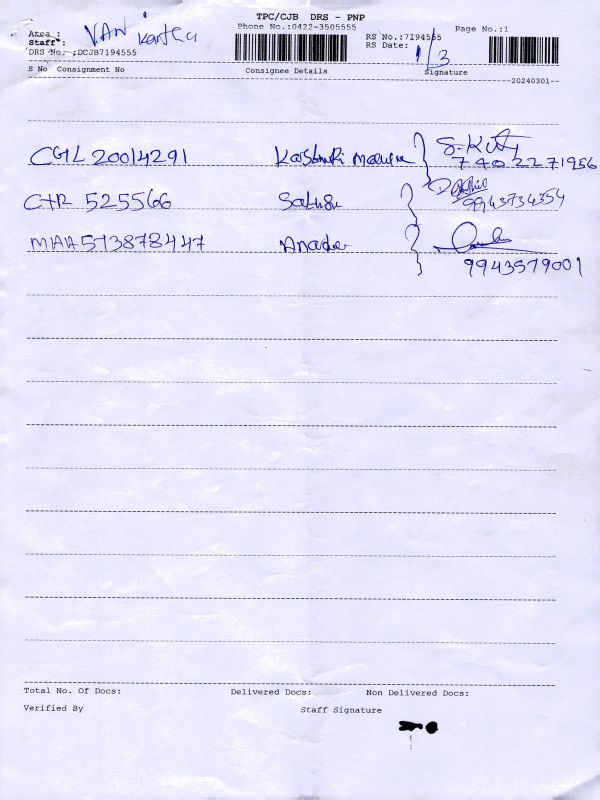 TPC/CJB DRS - PNP
Area :
Phone No.:0422-3505555
Page No.:1
VAN
Staff :
RS No.:7194555
RS Date: 1/3
DRS No. :DCJB7194555
S No Consignment No Consignee Details Signature
--20240301--
CGL 20014291
7402271956
CTR 525566
9943734354
MAA513878447
9943579001
Total No. Of Docs: Delivered Docs: Non Delivered Docs:
Verified By Staff Signature